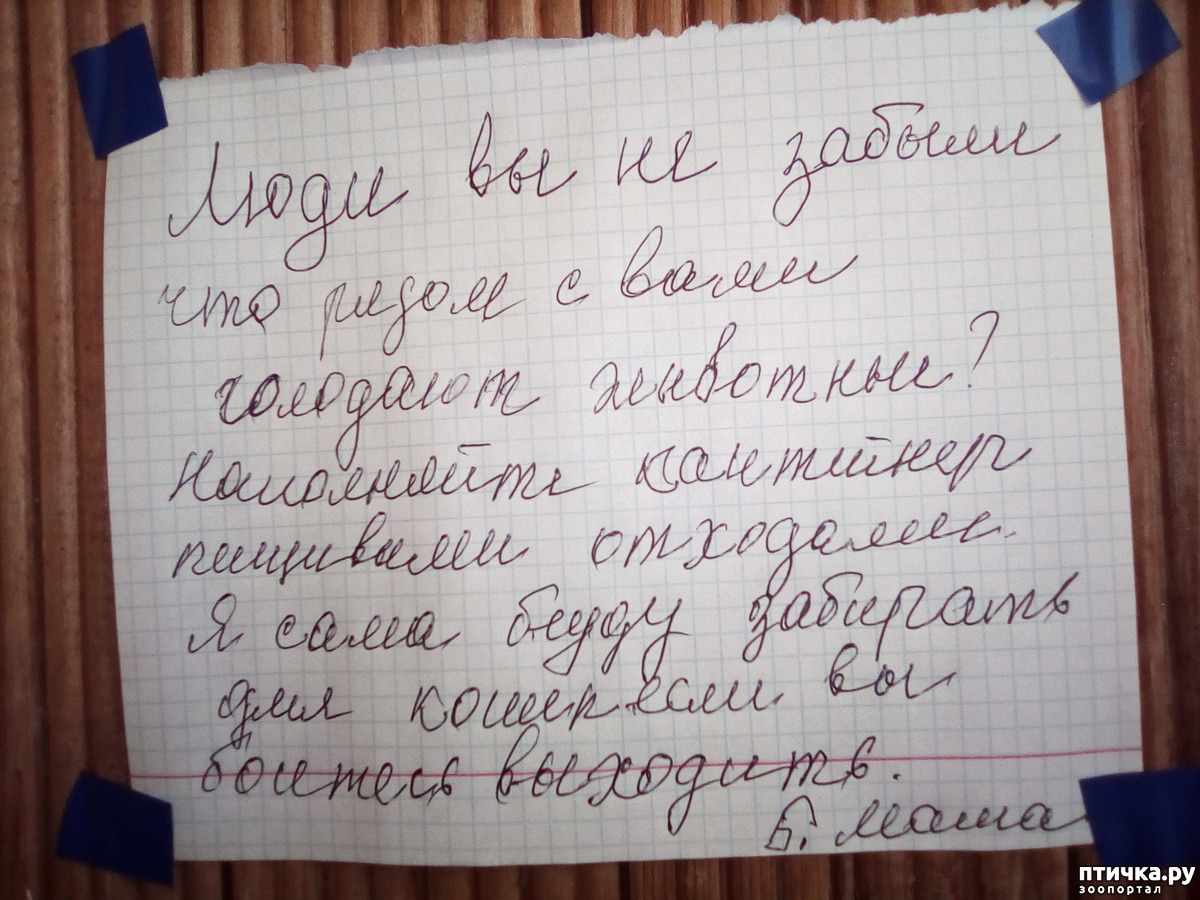 Люди вы не забыли
что рядом с вами
голодают животные?
Наполняйте кантейнер
пищивами отходами.
Я сама буду забирать
для кошек если вы
боитесь выходить.
Б. Маша
птичка.ру
зоопортал